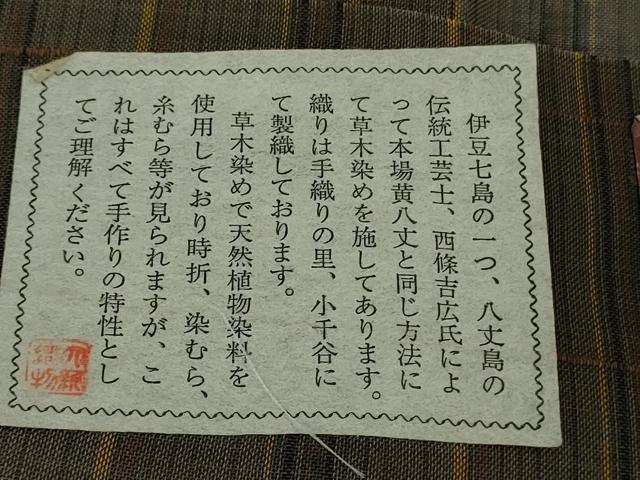 伊豆七島の一つ、八丈島の
伝統工芸士、西條吉広氏によ
って本場黄八丈と同じ方法に
て草木染めを施してあります。
織りは手織りの里、小千谷に
て製織しております。
草木染めで天然植物染料を
使用しており時折、染むら、
糸むら等が見られますが、こ
れはすべて手作りの特性とし
てご理解ください。